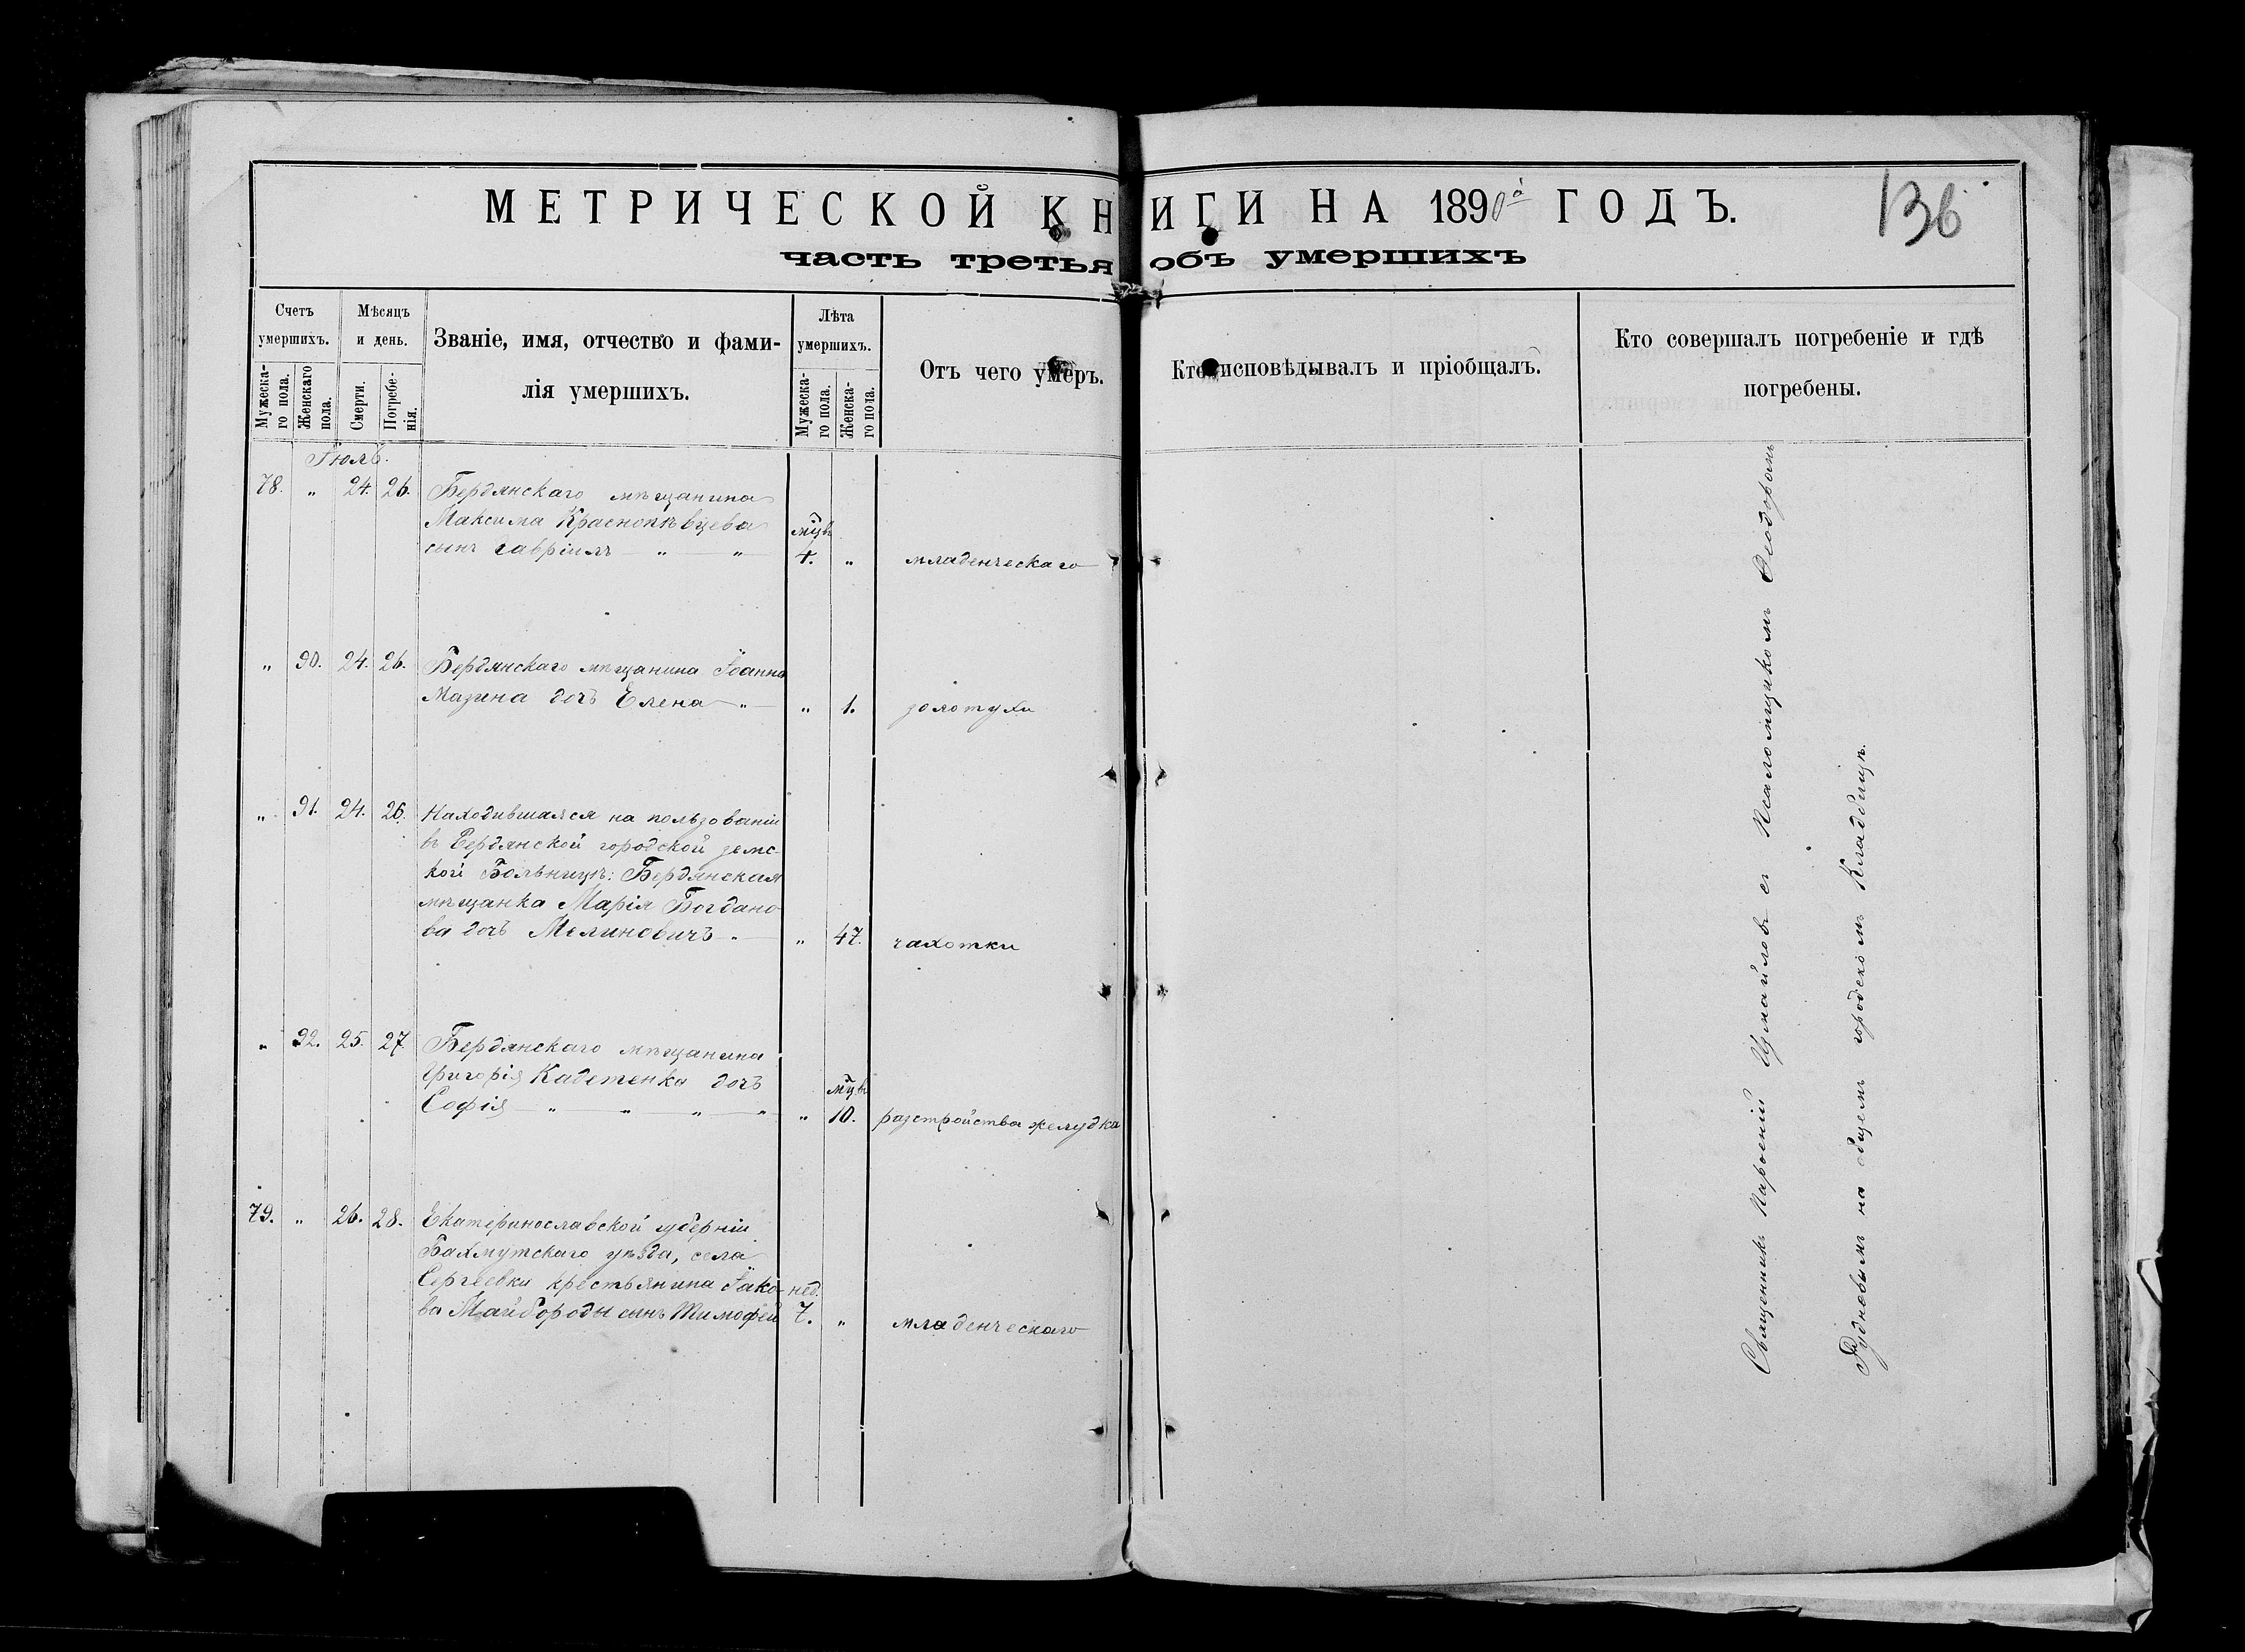 МЕТРИЧЕСКОЙ КНИГИ НА 1890й ГОДЪ.
136
часть третья объ умершихъ
Счетъ умершихъ.
Мѣсяцъ и день.
Званіе, имя, отчество и фамилія умершихъ.
Лѣта умершихъ.
Отъ чего умеръ.
Кто исповѣдывалъ и пріобщалъ.
Кто совершалъ погребеніе и гдѣ погребены.
Мужескаго пола.
Женскаго пола.
Смерти.
Погребенія.
Мужескаго пола.
Женскаго пола.
Іюль.
78. " 24. 26. Бердянскаго мѣщанина
Максима Краснопѣвцева мцв
сынъ Гавріилъ " " 4. " младенческаго
" 90. 24. 26. Бердянскаго мѣщанина Іоанна
Мазина дочь Елена " " 1. золотухи
" 91. 24. 26. Находившаяся на пользованіи
въ Бердянской городской земс-
кой Больницѣ: Бердянская
мѣщанка Марія Богдано
ва дочь Мелиновичъ " " 47. чахотки
" 92. 25. 27 Бердянскаго мѣщанина
Григорія Кадетенка дочь мцв
София " " " " " 10. разстройства желудка
79. " 26. 28. Екатеринославской губерніи
Бахмутскаго уѣзда, села
Сергѣевки крестьянина Іако- нед.
ва Майбороды сынъ Тимофей 7. " младенческаго
Священникъ Парѳеній Измайловъ съ Псаломщикомъ Ѳеодоромъ
Рудневымъ на общемъ городскомъ Кладбищѣ.